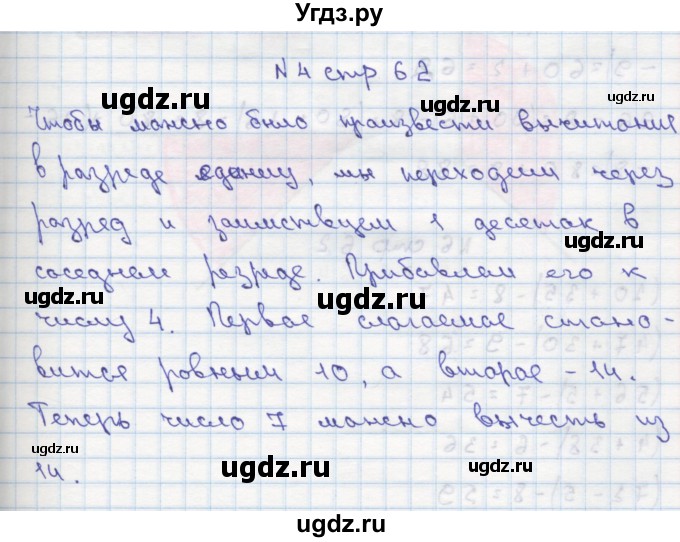 Угдз.ру
N 4 стр 62
ugdz.ru ugdz.ru
Чтобы можно было произвести вычитание
в разряде единиц, мы переходим через
ugdz.ru ugdz.ru
разряд и заимствуем 1 десяток в
ugdz.ru
соседнем разряде. Прибавляем его к
ugdz.ru ugdz.ru
числу 4. Первое слагаемое стано-
вится ровным 10, а второе - 14.
ugdz.ru ugdz.ru
Теперь число 7 можно вычесть из
14.
ugdz.ru ugdz.ru
ugdz.ru